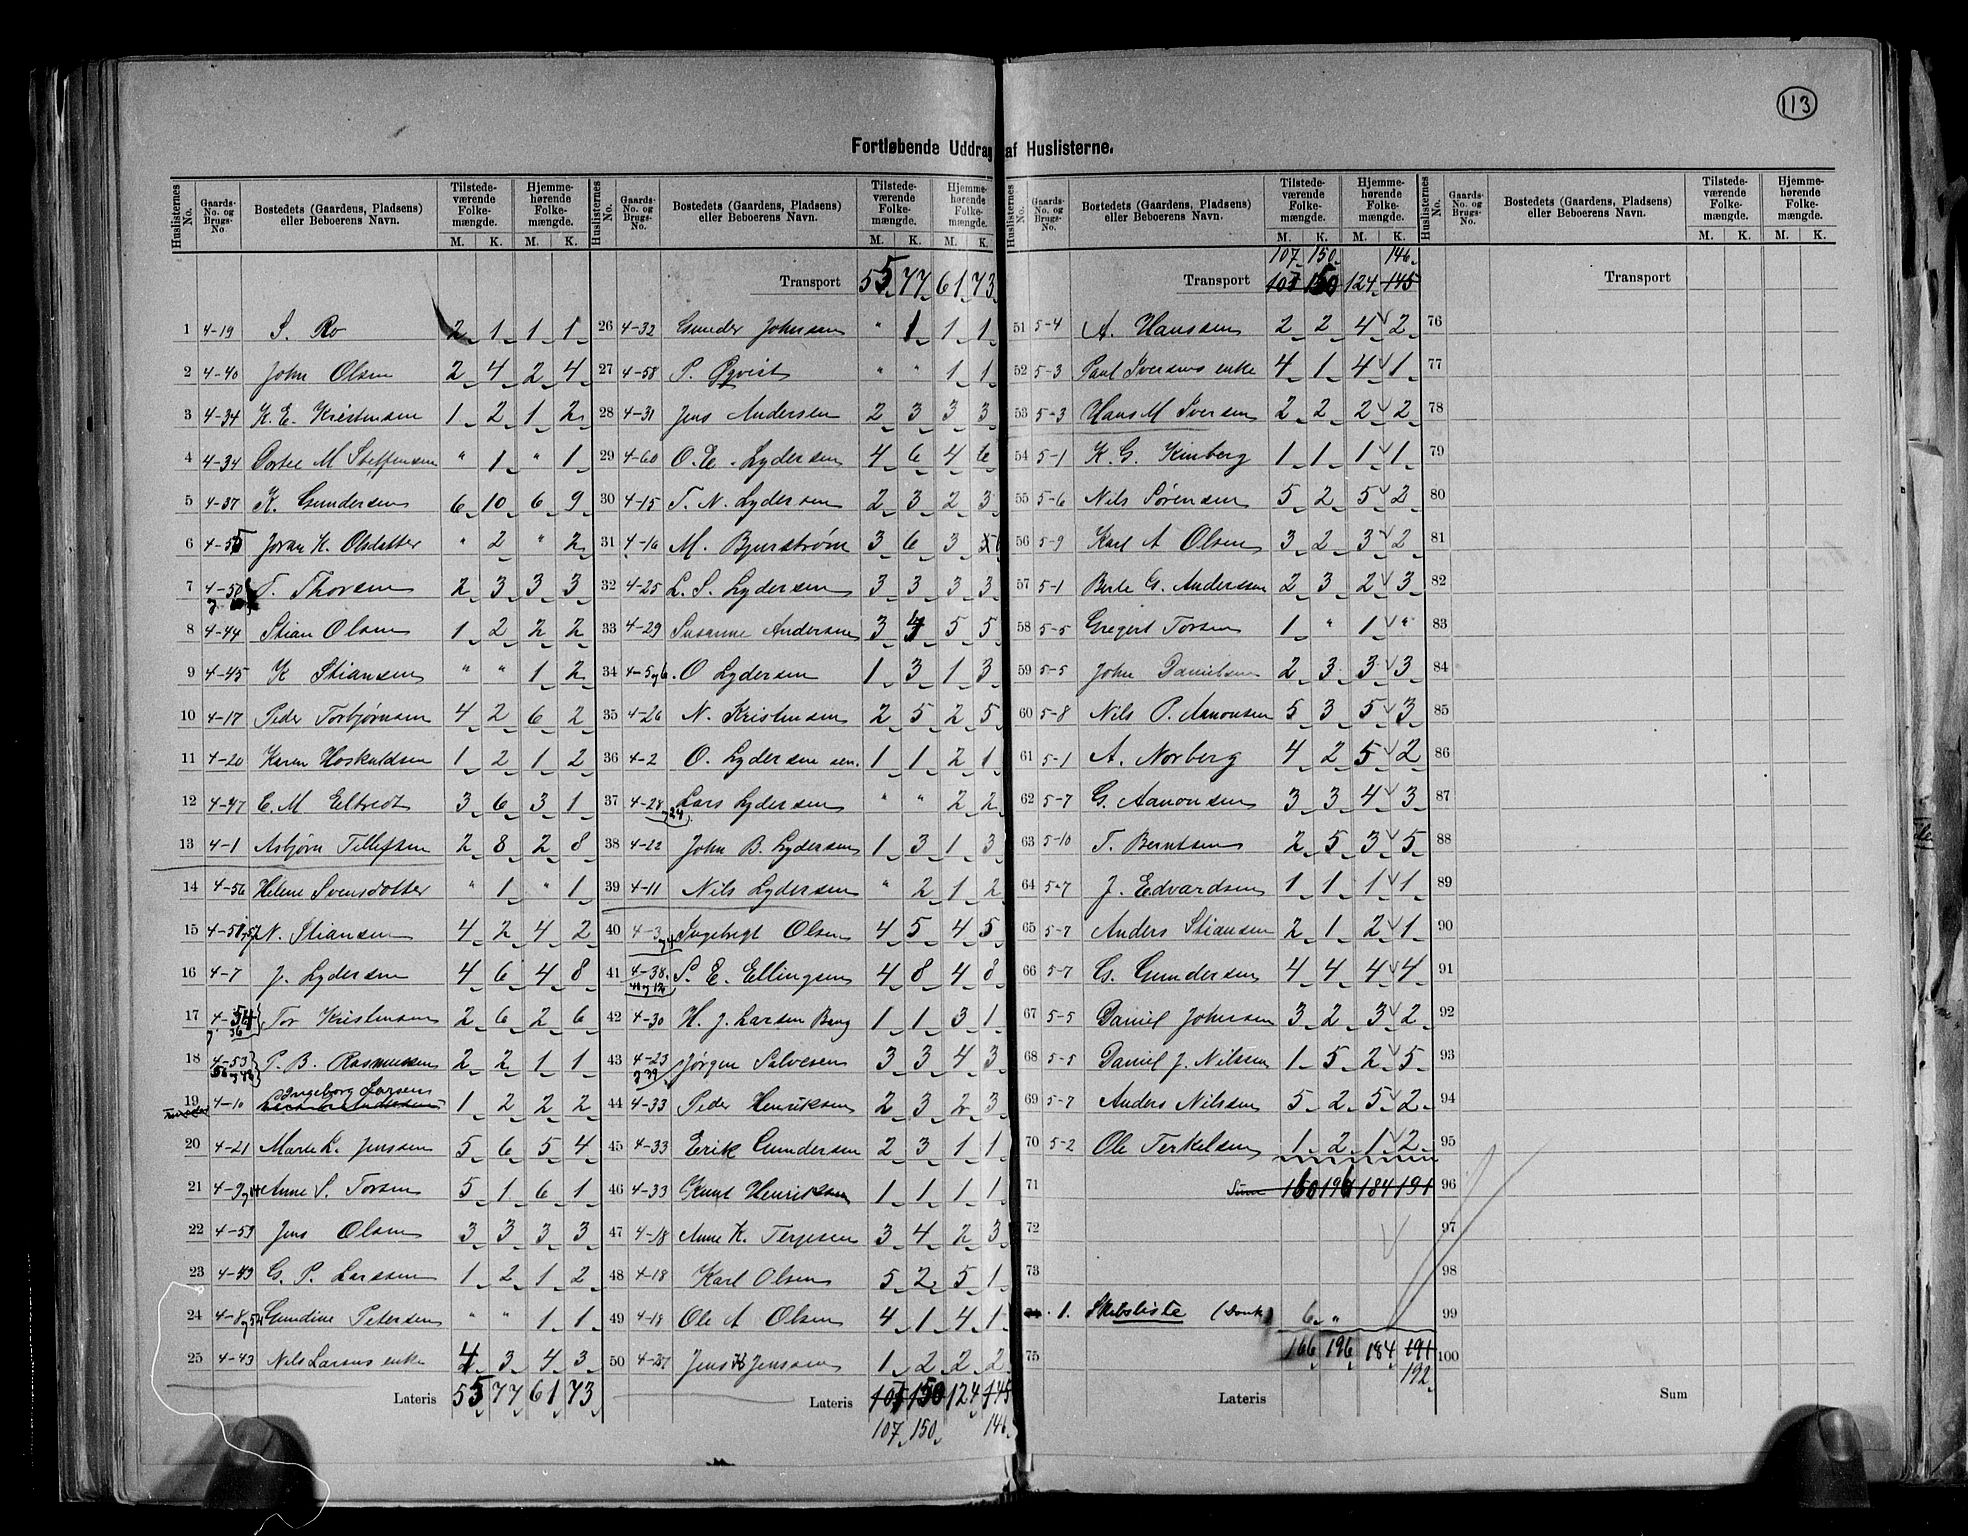 113
Fortløbende Uddrag af Huslisterne.
Huslisternes No. Gaards-No. og Brugs-No Bostedets (Gaardens, Pladsens) eller Beboerens Navn. Tilstedeværende Folkemængde. M. K. Hjemmehørende Folkemængde. M. K.
1 4-19 S. Ro 2 1 1 1
2 4-40 John Olsen 2 4 2 4
3 4-34 K. E. Kristensen 1 2 1 2
4 4-34 Dortee M Steffensen " 1 " 1
5 4-37 K. Gundersen 6 10 6 9
6 4-55 Joran K. Olsdatter " 2 " 2
7 4-50 T. Thorsen 2 3 3 3
8 4-44 Stian Olsen 1 2 2 2
9 4-45 K Stiansen " " 1 2
10 4-17 Peder Torbjørnsen 4 2 6 2
11 4-20 Karen Hoskuldsen 1 2 1 2
12 4-47 E. M Eltvedt 3 6 3 1
13 4-1 Asbjørn Tellefsen 2 8 2 8
14 4-56 Helene Svensdotter " 1 " 1
15 N. Stiansen 4 2 4 2
16 4-7 J. Lydersen 4 6 4 8
17 4-54 og 36 Tor Kristensen 2 6 2 6
18 4-53 P. B. Rasmussen 2 2 1 1
19 4-10 Ingeborg Larsen 1 2 2 2
20 4-21 Marte L. Jenssen 5 6 5 4
21 Anne S. Torsen 5 1 6 1
22 4-59 Jens Olsen 3 3 3 3
23 4-49 G. P. Larssen 1 2 1 2
24 Gundine Petersen " " 1 1
25 4-43 Nils Larsens enke 4 3 4 3
Lateris 55 77 61 73
Huslisternes No. Gaards-No. og Brugs-No. Bostedets (Gaardens, Pladsens) eller Beboerens Navn. Tilstedeværende Folkemængde. M. K. Hjemmehørende Folkemængde. M. K.
Transport 55 77 61 73
26 4-32 Gunder Johnsen " 1 1 1
27 4-58 P. Qvist " " 1 1
28 4-31 Jens Andersen 2 3 3 3
29 4-60 O. E. Lydersen 4 6 4 6
30 4-15 T. N. Lydersen 2 3 2 3
31 4-16 M. Bjurstrøm 3 6 3
32 4-25 L. S. Lydersen 3 3 3 3
33 4-29 Susanne Andersen 3 4 5 5
34 4-5 og 6 O Lydersen 1 3 1 3
35 4-26 N. Kristensen 2 5 2 5
36 4-2 O. Lydersen sen. 1 1 2 1
37 4-28 og 24 Lars Lydersen " " 2 2
38 4-22 John B. Lydersen 1 3 1 3
39 4-11 Nils Lydersen " 2 1 2
40 4-3 Ingebrigt Olsen 4 5 4 5
41 4-38 S. E. Ellingsen 4 8 4 8
42 4-30 H. J. Larsen Bang 1 1 3 1
43 4-23 og 39 Jørgen Salvesen 3 3 4 3
44 4-33 Peder Henriksen 2 3 2 3
45 4-33 Erik Gundersen 2 3 1 1
46 4-33 Knut Henriksen 1 1 1 1
47 4-18 Anne K. Terjesen 3 4 2 3
48 4-18 Karl Olsen 5 2 5 1
49 4-18 Ole A Olsen 4 1 4 1
50 Jens Jenssen 1 2 2 2
Lateris 105 150 124 145
107 150 146
Huslisternes No. Gaards-No. og Brugs-No. Bostedets (Gaardens, Pladsens) eller Beboerens Navn. Tilstedeværende Folkemængde. M. K. Hjemmehørende Folkemængde. M. K.
107 150 146
Transport 105 150 124 145
51 5-4 A. Hanssen 2 2 4 2
52 5-3 Paul Iversens enke 4 1 4 1
53 5-3 Hans M Iversen 2 2 2 2
54 5-1 K. G. Kinberg 1 1 1 1
55 5-6 Nils Sørensen 5 2 5 2
56 5-9 Karl A Olsen 3 2 3 2
57 5-1 Berte G. Anderssen 2 3 2 3
58 5-5 Gregert Torsen 1 " 1 "
59 5-5 John Danielsen 2 3 3 3
60 5-8 Nils P. Aanonsen 5 3 5 3
61 5-1 A. Norberg 4 2 5 2
62 5-7 G. Aanonsen 3 3 4 3
63 5-10 T. Berntsen 2 5 3 5
64 5-7 J. Edvardsen 1 1 1 1
65 5-7 Anders Stiansen 2 1 2 1
66 5-7 G. Gundersen 4 4 4 4
67 5-5 Daniel Johnsen 3 2 3 2
68 5-5 Daniel J. Nilssen 1 5 2 5
69 5-7 Anders Nilssen 5 2 5 2
70 5-2 Ole Terkelsen 1 2 1 2
71 Sum 160 196 184 191
72
73
1. Skibsliste 6 "
75 166 196 184 191
192
Lateris
Huslisternes No. Gaards-No. og Brugs-No. Bostedets (Gaardens, Pladsens) eller Beboerens Navn. Tilstedeværende Folkemængde. M. K. Hjemmehørende Folkemængde. M. K.
Transport
76
77
78
79
80
81
82
83
84
85
86
87
88
89
90
91
92
93
94
95
96
97
98
99
100
Sum